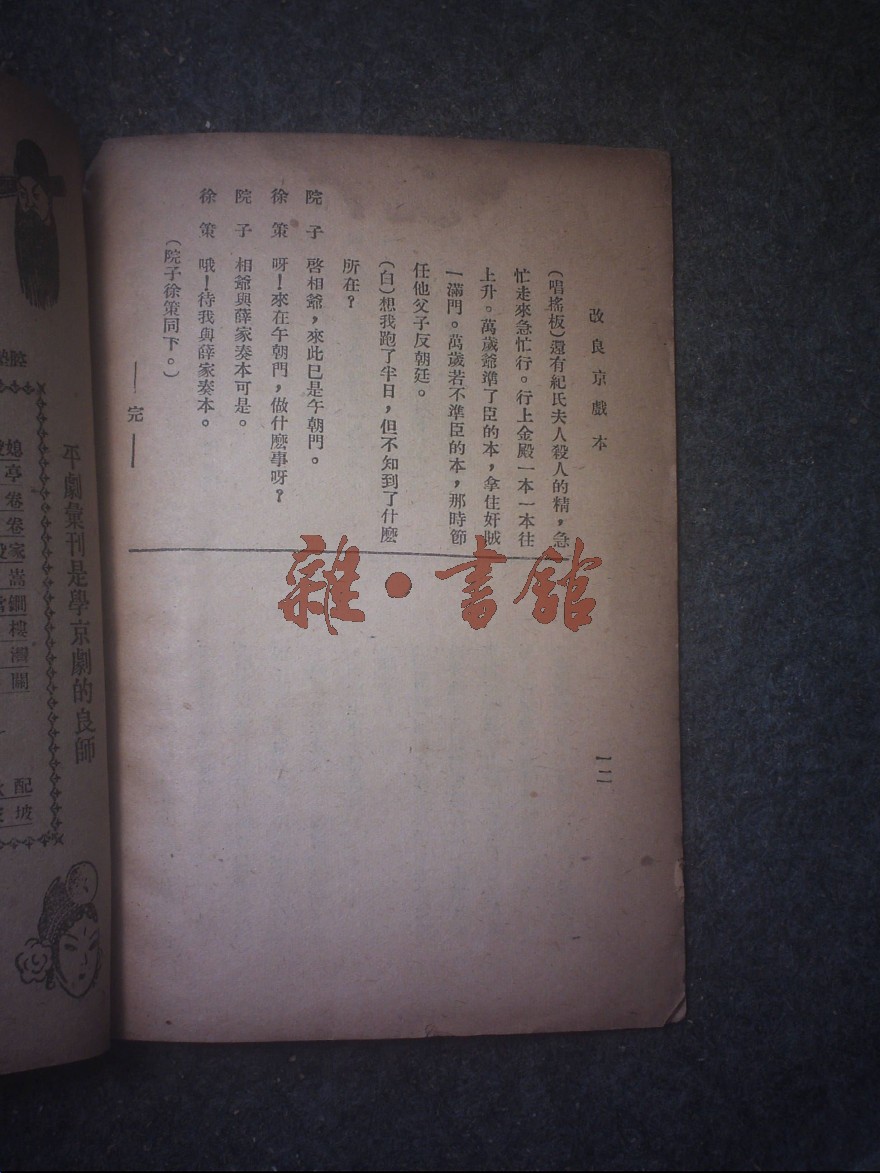 改良京戲本
(唱搖板)還有紀氏夫人殺人的精，急
忙走來急忙行。行上金殿一本一本往
上升。萬歲爺準了臣的本，拿住奸賊
一滿門。萬歲若不準臣的本，那時節
任他父子反朝廷。
(白)想我跑了半日，但不知到了什麽
所在？
院子 啓相爺，來此已是午朝門。
徐策 呀！來在午朝門，做什麽事呀？
院子 相爺與薛家奏本可是。
徐策 哦！待我與薛家奏本。
(院子徐策同下。)
——完——
一二
雜·書館
平劇彙刊是學京劇的良師
亭
卷
卷
家
嵩
鐧
樓
關
配
坡